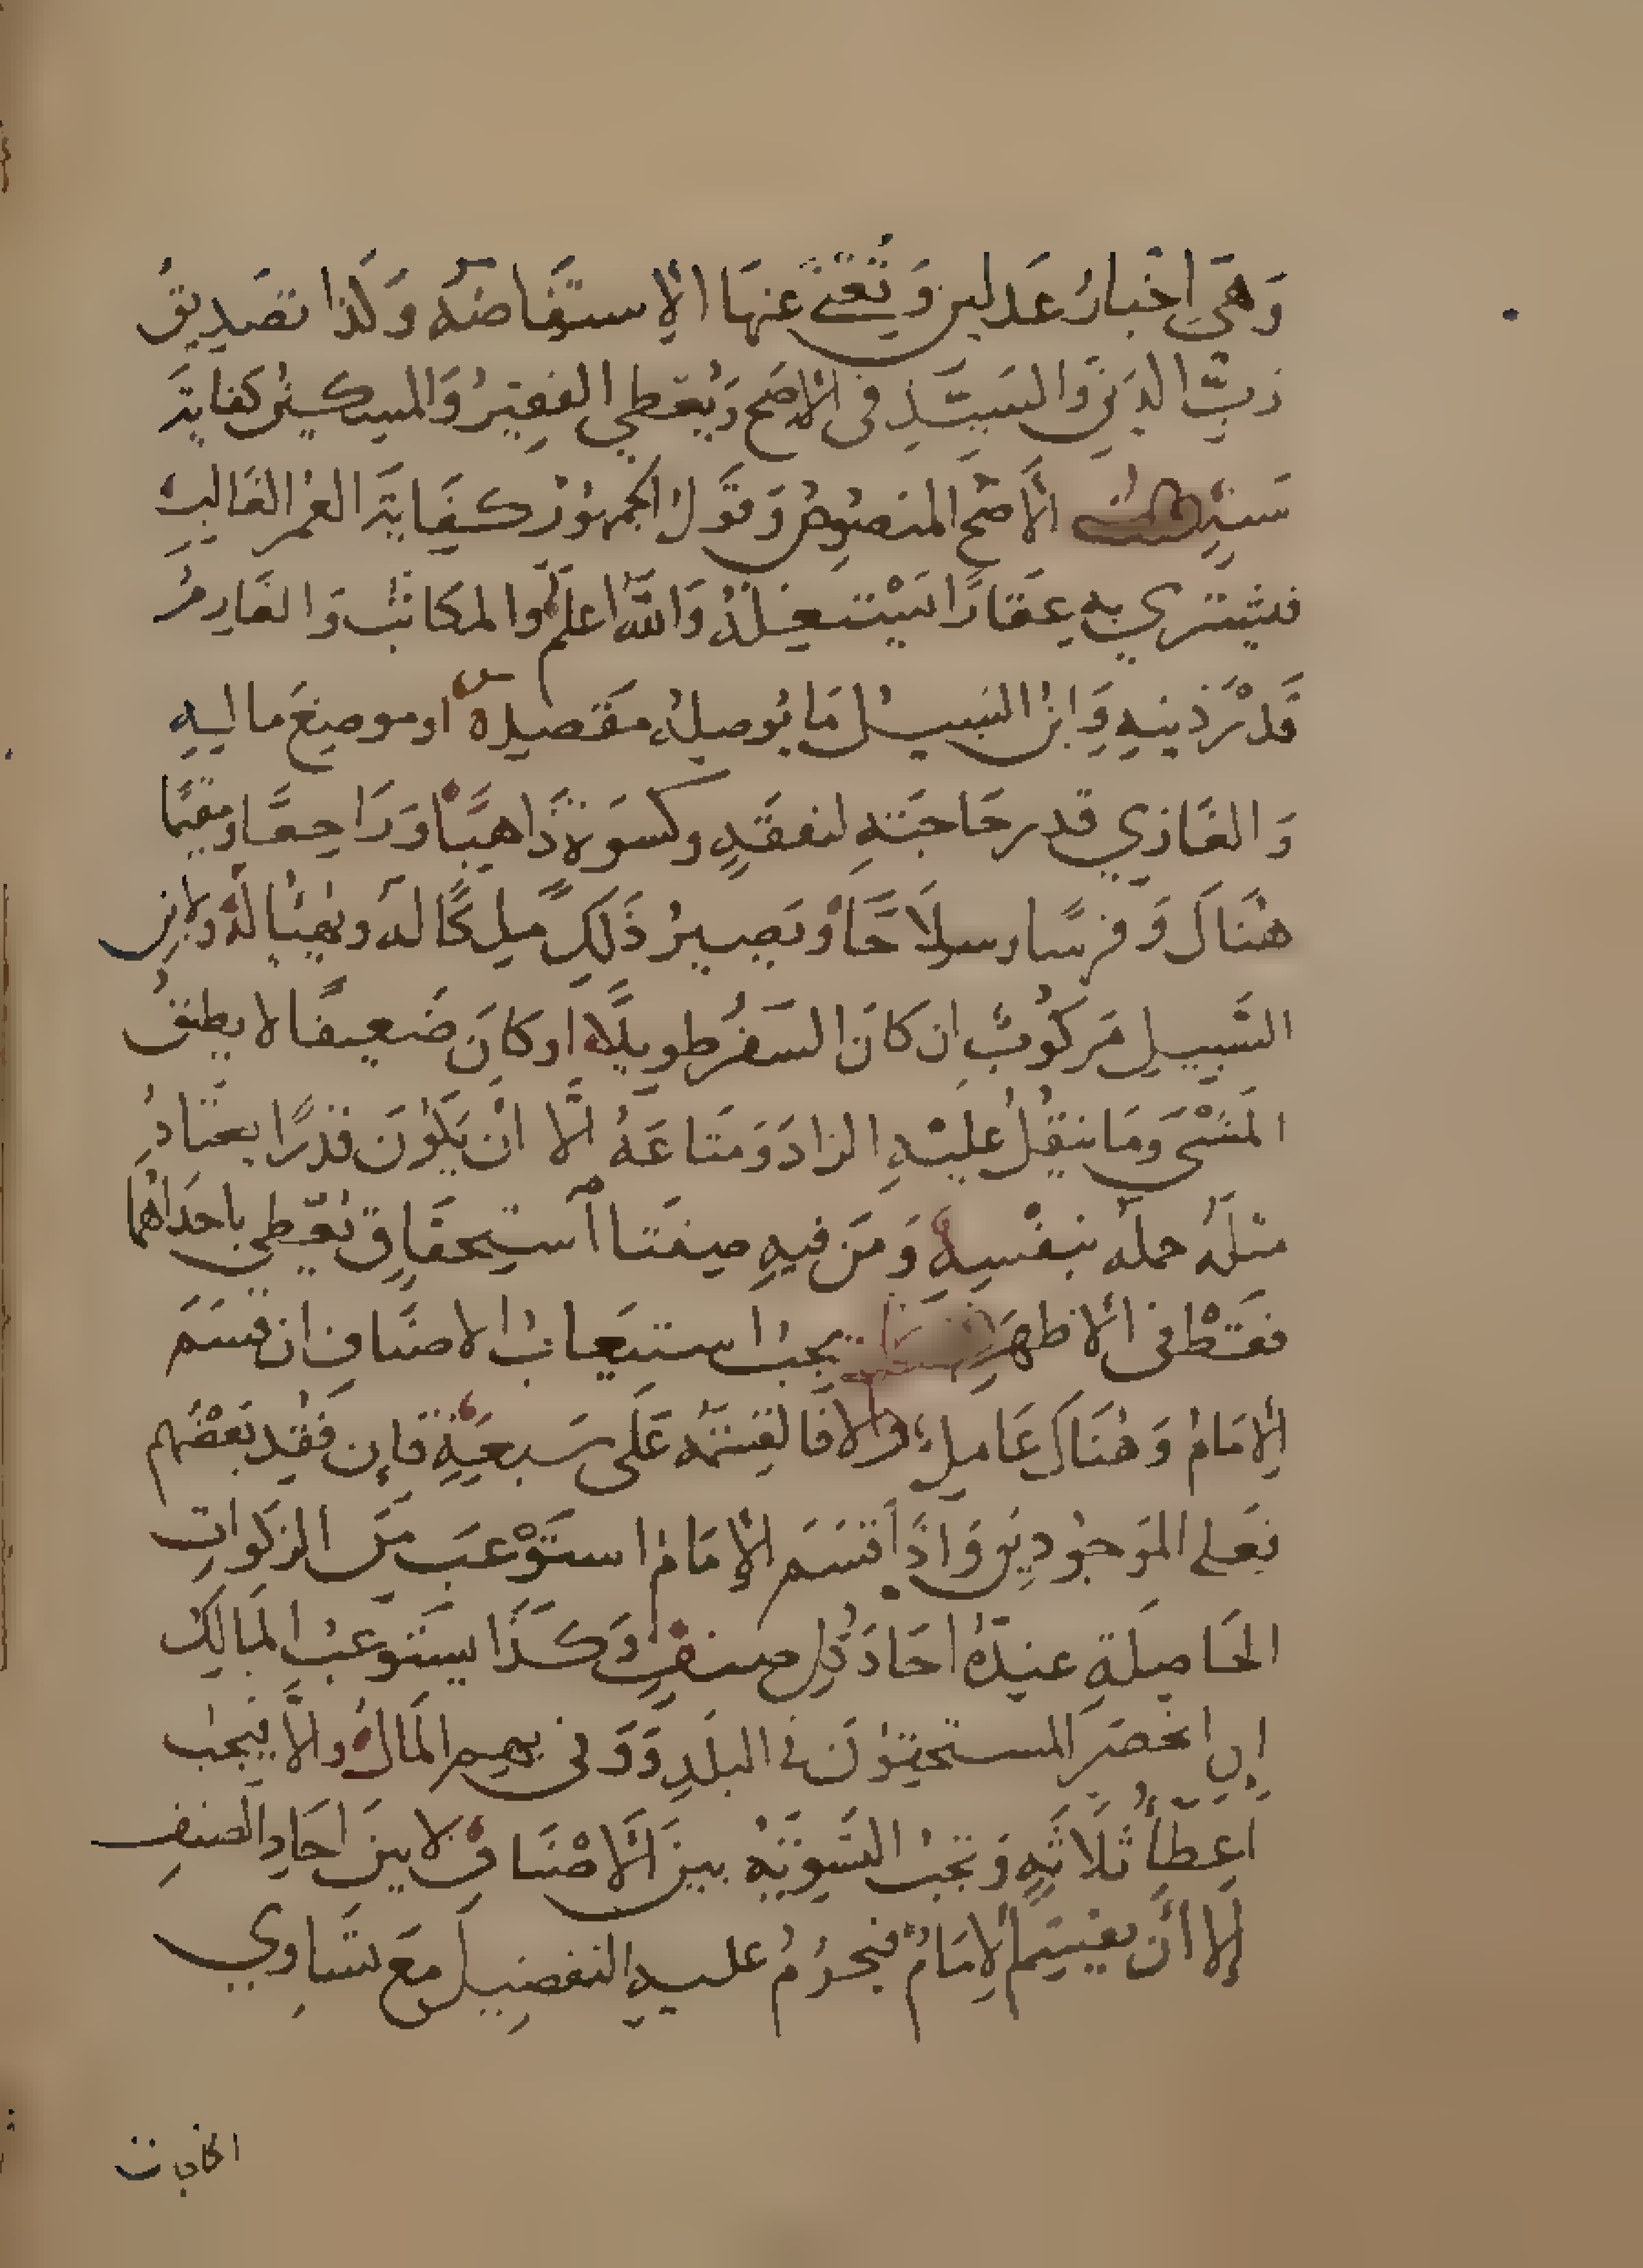 وَهِيَ اِخْبَارُ عَدلين وَتُغْنِي عنهَا الاِستفَاضَه وَكَذا تصَدِيقُ
رَبِّ الدَينِ وَالسَيِّدِ في الاَصَح وَيُعطي الفقِيرُ وَالمسكينُ كفايَة
سَنةٍ قلت الاَصَحُّ المنصُوصُ وَقوَلُ الجمهُور كفَايَة العُمرِ الغَالبِ
فيشترِي بِهِ عقَارًا يَسْتغِلهُ وَاللَّهُ اعلَم والمكاتَبُ وَالغَارِمُ
قَدْرَ دَينِهِ وَابنُ السَبِيلِ مَا يُوصِلُهُ مقصِدهُ او موضِعَ مالِهِ
وَالغَازِي قدر حَاجَتِهِ لنفقَةٍ وكسوَةٍ ذَاهِبًا وَرَاجِعًا ومقيمًا
هُنَاكَ وَفرسًا وسلَاحًا وَيَصِيرُ ذَلِكَ مِلكًا لَهُ ويُهيَّا لَهُ ولابنِ
السَّبِيلِ مَركُوبٌ اِن كانَ السَفرُ طويلًا او كانَ ضَعِيفًا لا يطيقُ
المَشْيَ وَمَا ينقُلُ عَليْهِ الزادَ وَمَتَاعَهُ اِلَّا انْ يَكُونَ قدْرًا يعتَادُ
مثلَهُ حملَه بنفْسِهِ وَمَن فِيهِ صِفتَا اَستِحقَاقٍ يُعْطي باحدَاهُما
فقَطْ في الاَظهَرِ فصل يجبُ استيعَابُ الاصنَافِ ان قسَمَ
اِلامَامُ وَهُنَاكَ عَامِلٌ واِلا فَالقِسْمَه عَلَى سَبعَةٍ فاِن فُقِدَ بَعْضُهم
فعَلى المَوجُودِينَ وَاذَا قسَمَ الاِمَامُ استَوْعَبَ مِنَ الزكَوَاتِ
الحَاصِلَةِ عندَهُ احَادَ كُلِ صنفٍ وَكَذَا يستَوعبُ المَالِكُ
اِنِ انحصَرَ المستحِقوُنَ في البلَدِ وَوَفى بهم المَالُ واِلاَّ فيَجبُ
اعِطَاُ ثلَاثَهٍ وَتجبُ التَسويَهُ بينَ الاَصْنَافِ لا بينَ احَادِ الصنفِ
اِلا اَنْ يقسِمَ الاِمَامُ فيحرُمُ عليهِ التفضِيلُ مَعَ تسَاوِي
الحاجات